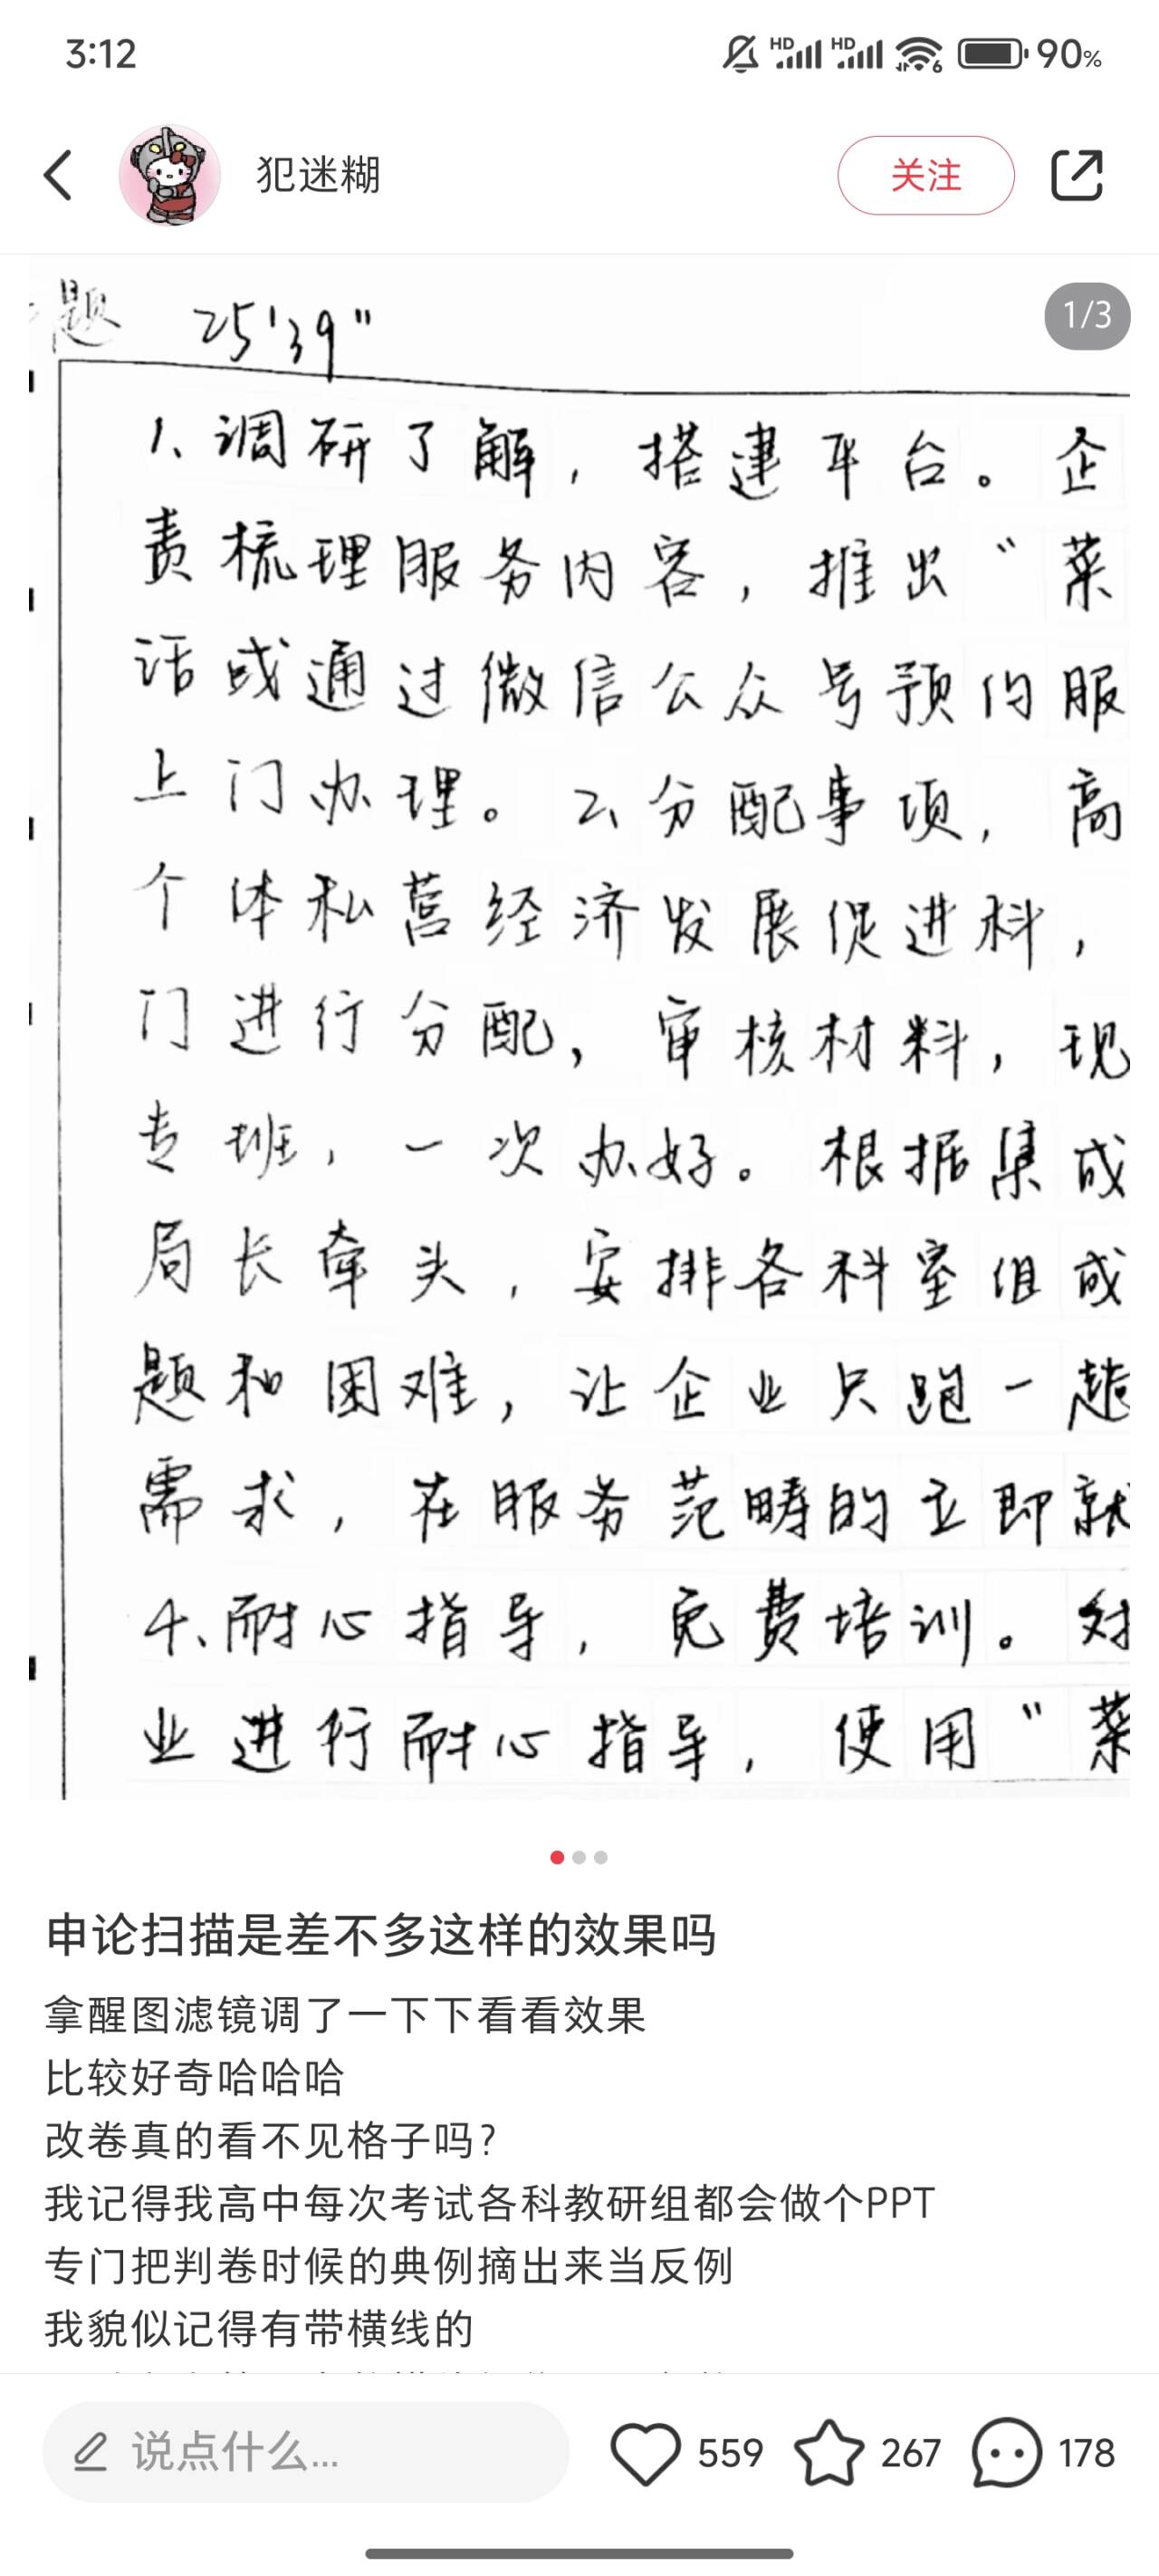 3:12
HD HD 6 90%
犯迷糊
关注
题 25'39"
1/3
1、调研了解，搭建平台。企
责梳理服务内容，推出“菜
话或通过微信公众号预约服
上门办理。2、分配事项，高
个体私营经济发展促进科，
门进行分配，审核材料，现
专班，一次办好。根据集成
局长牵头，安排各科室组成
题和困难，让企业只跑一趟
需求，在服务范畴的立即就
4、耐心指导，免费培训。对
业进行耐心指导，使用“菜
申论扫描是差不多这样的效果吗
拿醒图滤镜调了一下下看看效果
比较好奇哈哈哈
改卷真的看不见格子吗？
我记得我高中每次考试各科教研组都会做个PPT
专门把判卷时候的典例摘出来当反例
我貌似记得有带横线的
说点什么...
559
267
178